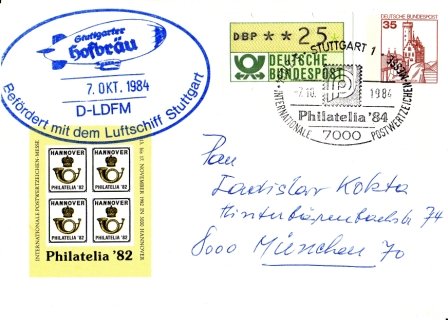 Stuttgarter
Hofbräu
7. OKT. 1984
D-LDFM
Befördert mit dem Luftschiff Stuttgart
DBP **25
DEUTSCHE
BUNDESPOST
DEUTSCHE BUNDESPOST
35
STUTTGART 1
-7.10.
1984
Philatelia '84
INTERNATIONALE
7000
POSTWERTZEICHEN
INTERNATIONALE POSTWERTZEICHEN-MESSE
HANNOVER
PHILATELIA '82
HANNOVER
PHILATELIA '82
HANNOVER
PHILATELIA '82
HANNOVER
PHILATELIA '82
NOVEMBER 1982 IN HANNOVER
Philatelia '82
Pan
Ladislav Kokta
74
8000 München 70